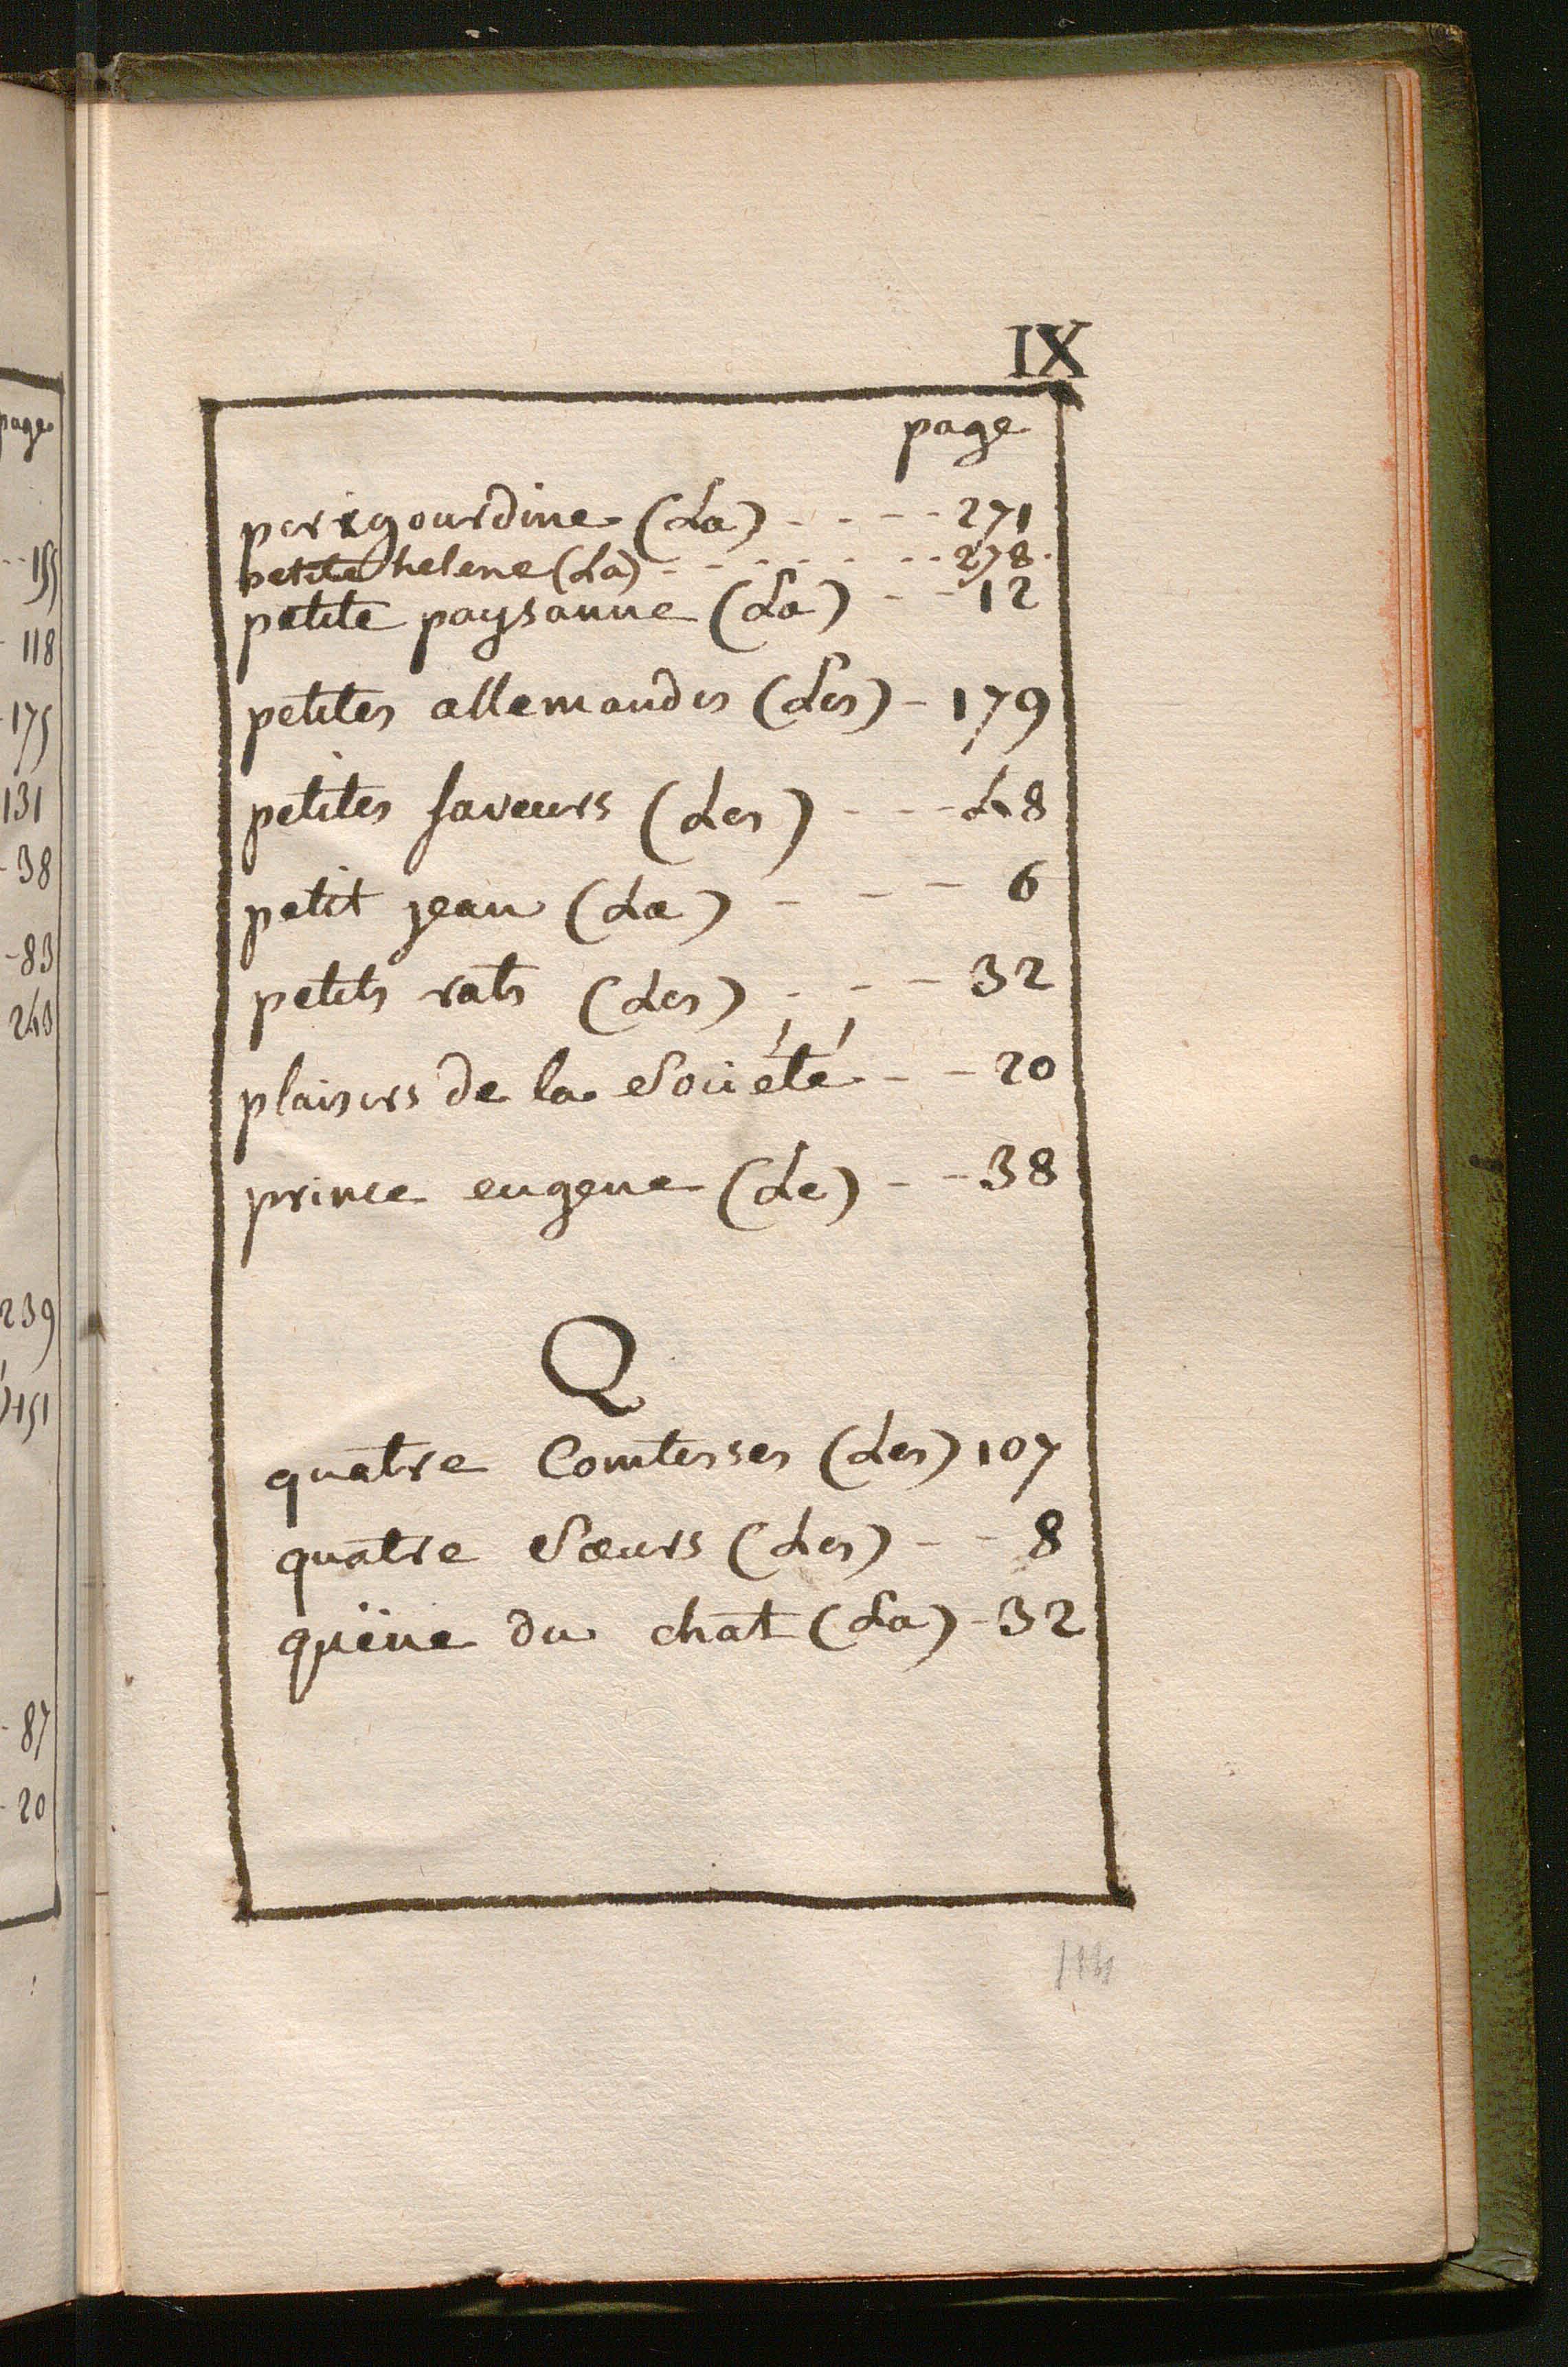 IX
page
perigourdine (La) - - - - 271
petite helene (La) - - - - - - - - 278.
petite paysanne (La) - - 12
petites allemandes (Les) - 179
petites faveurs (Les) - - - 48
petit jean (Le) - - - 6
petits rats (Les) - - - 32
plaisirs de la Société - - 20
prince eugene (Le) - - 38
Q
quatre Comtesses (Les) 107
quatre Sœurs (Les) - - 8
quëue du chat (La) - 32
page
155
- 118
- 175
131
- 38
- 83
243
239
151
- 87
- 20